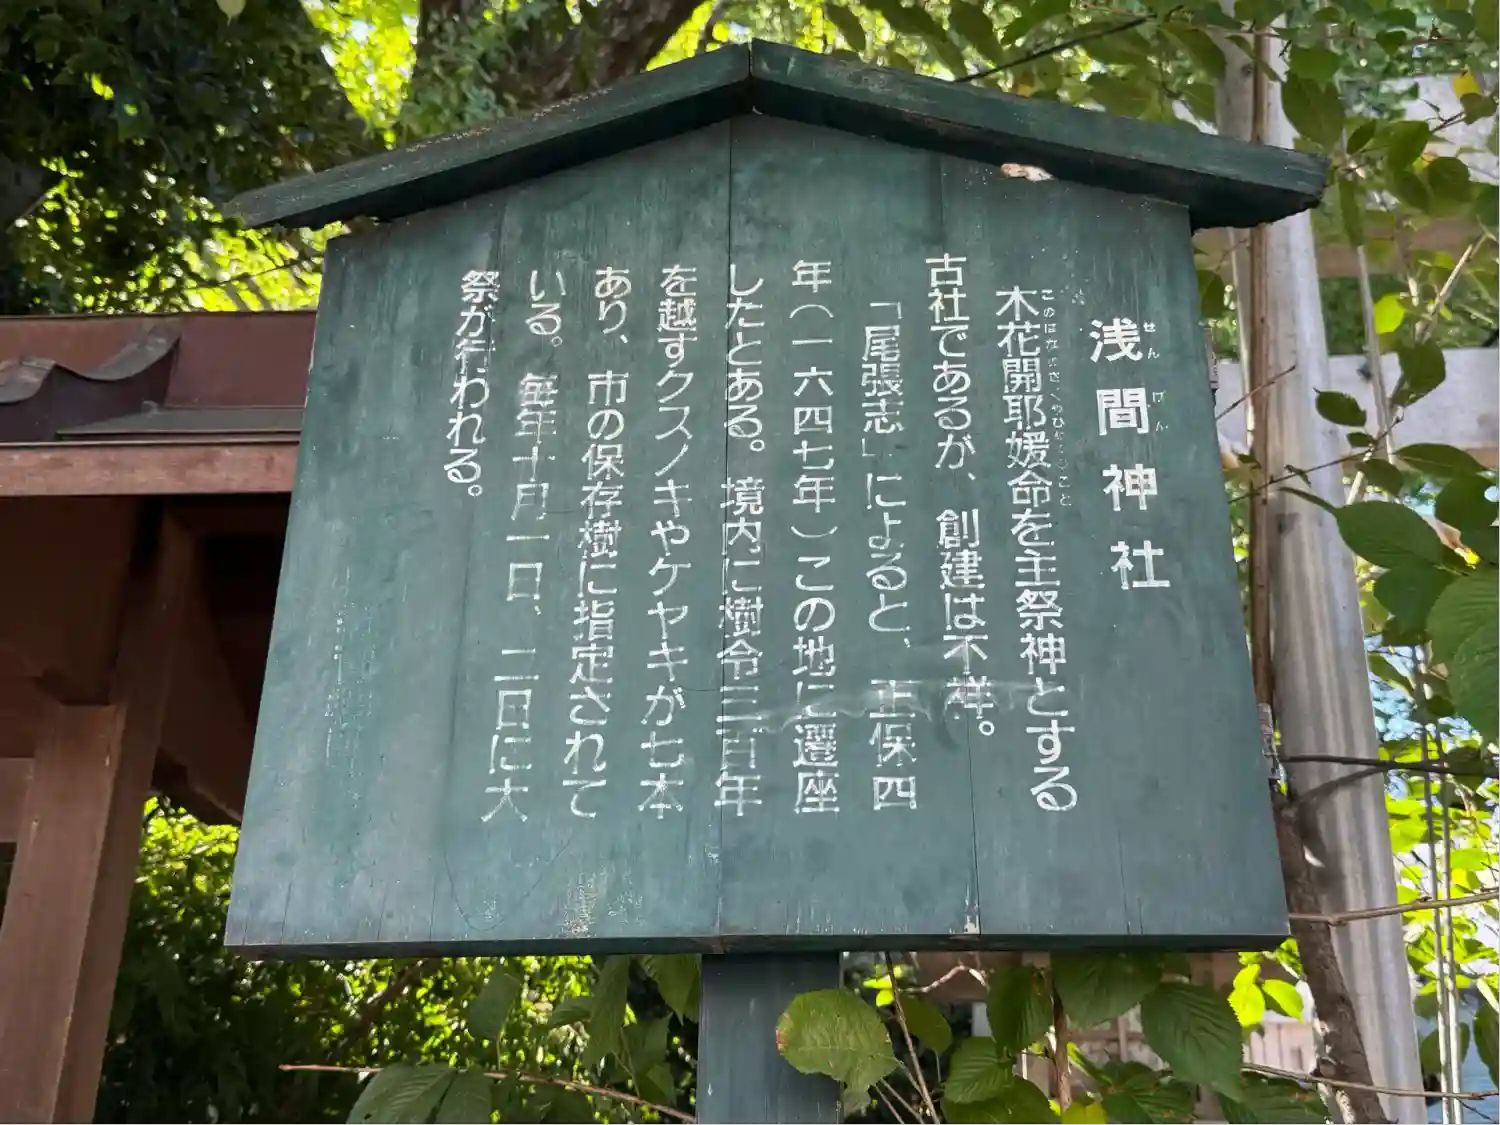 浅間神社
せんげん
木花開耶媛命を主祭神とする
このはなさくやひめのみこと
古社であるが、創建は不祥。
「尾張志」によると、正保四
年(一六四七年)この地に遷座
したとある。境内に樹令三百年
を越すクスノキやケヤキが七本
あり、市の保存樹に指定されて
いる。毎年十月一日、二日に大
祭が行われる。